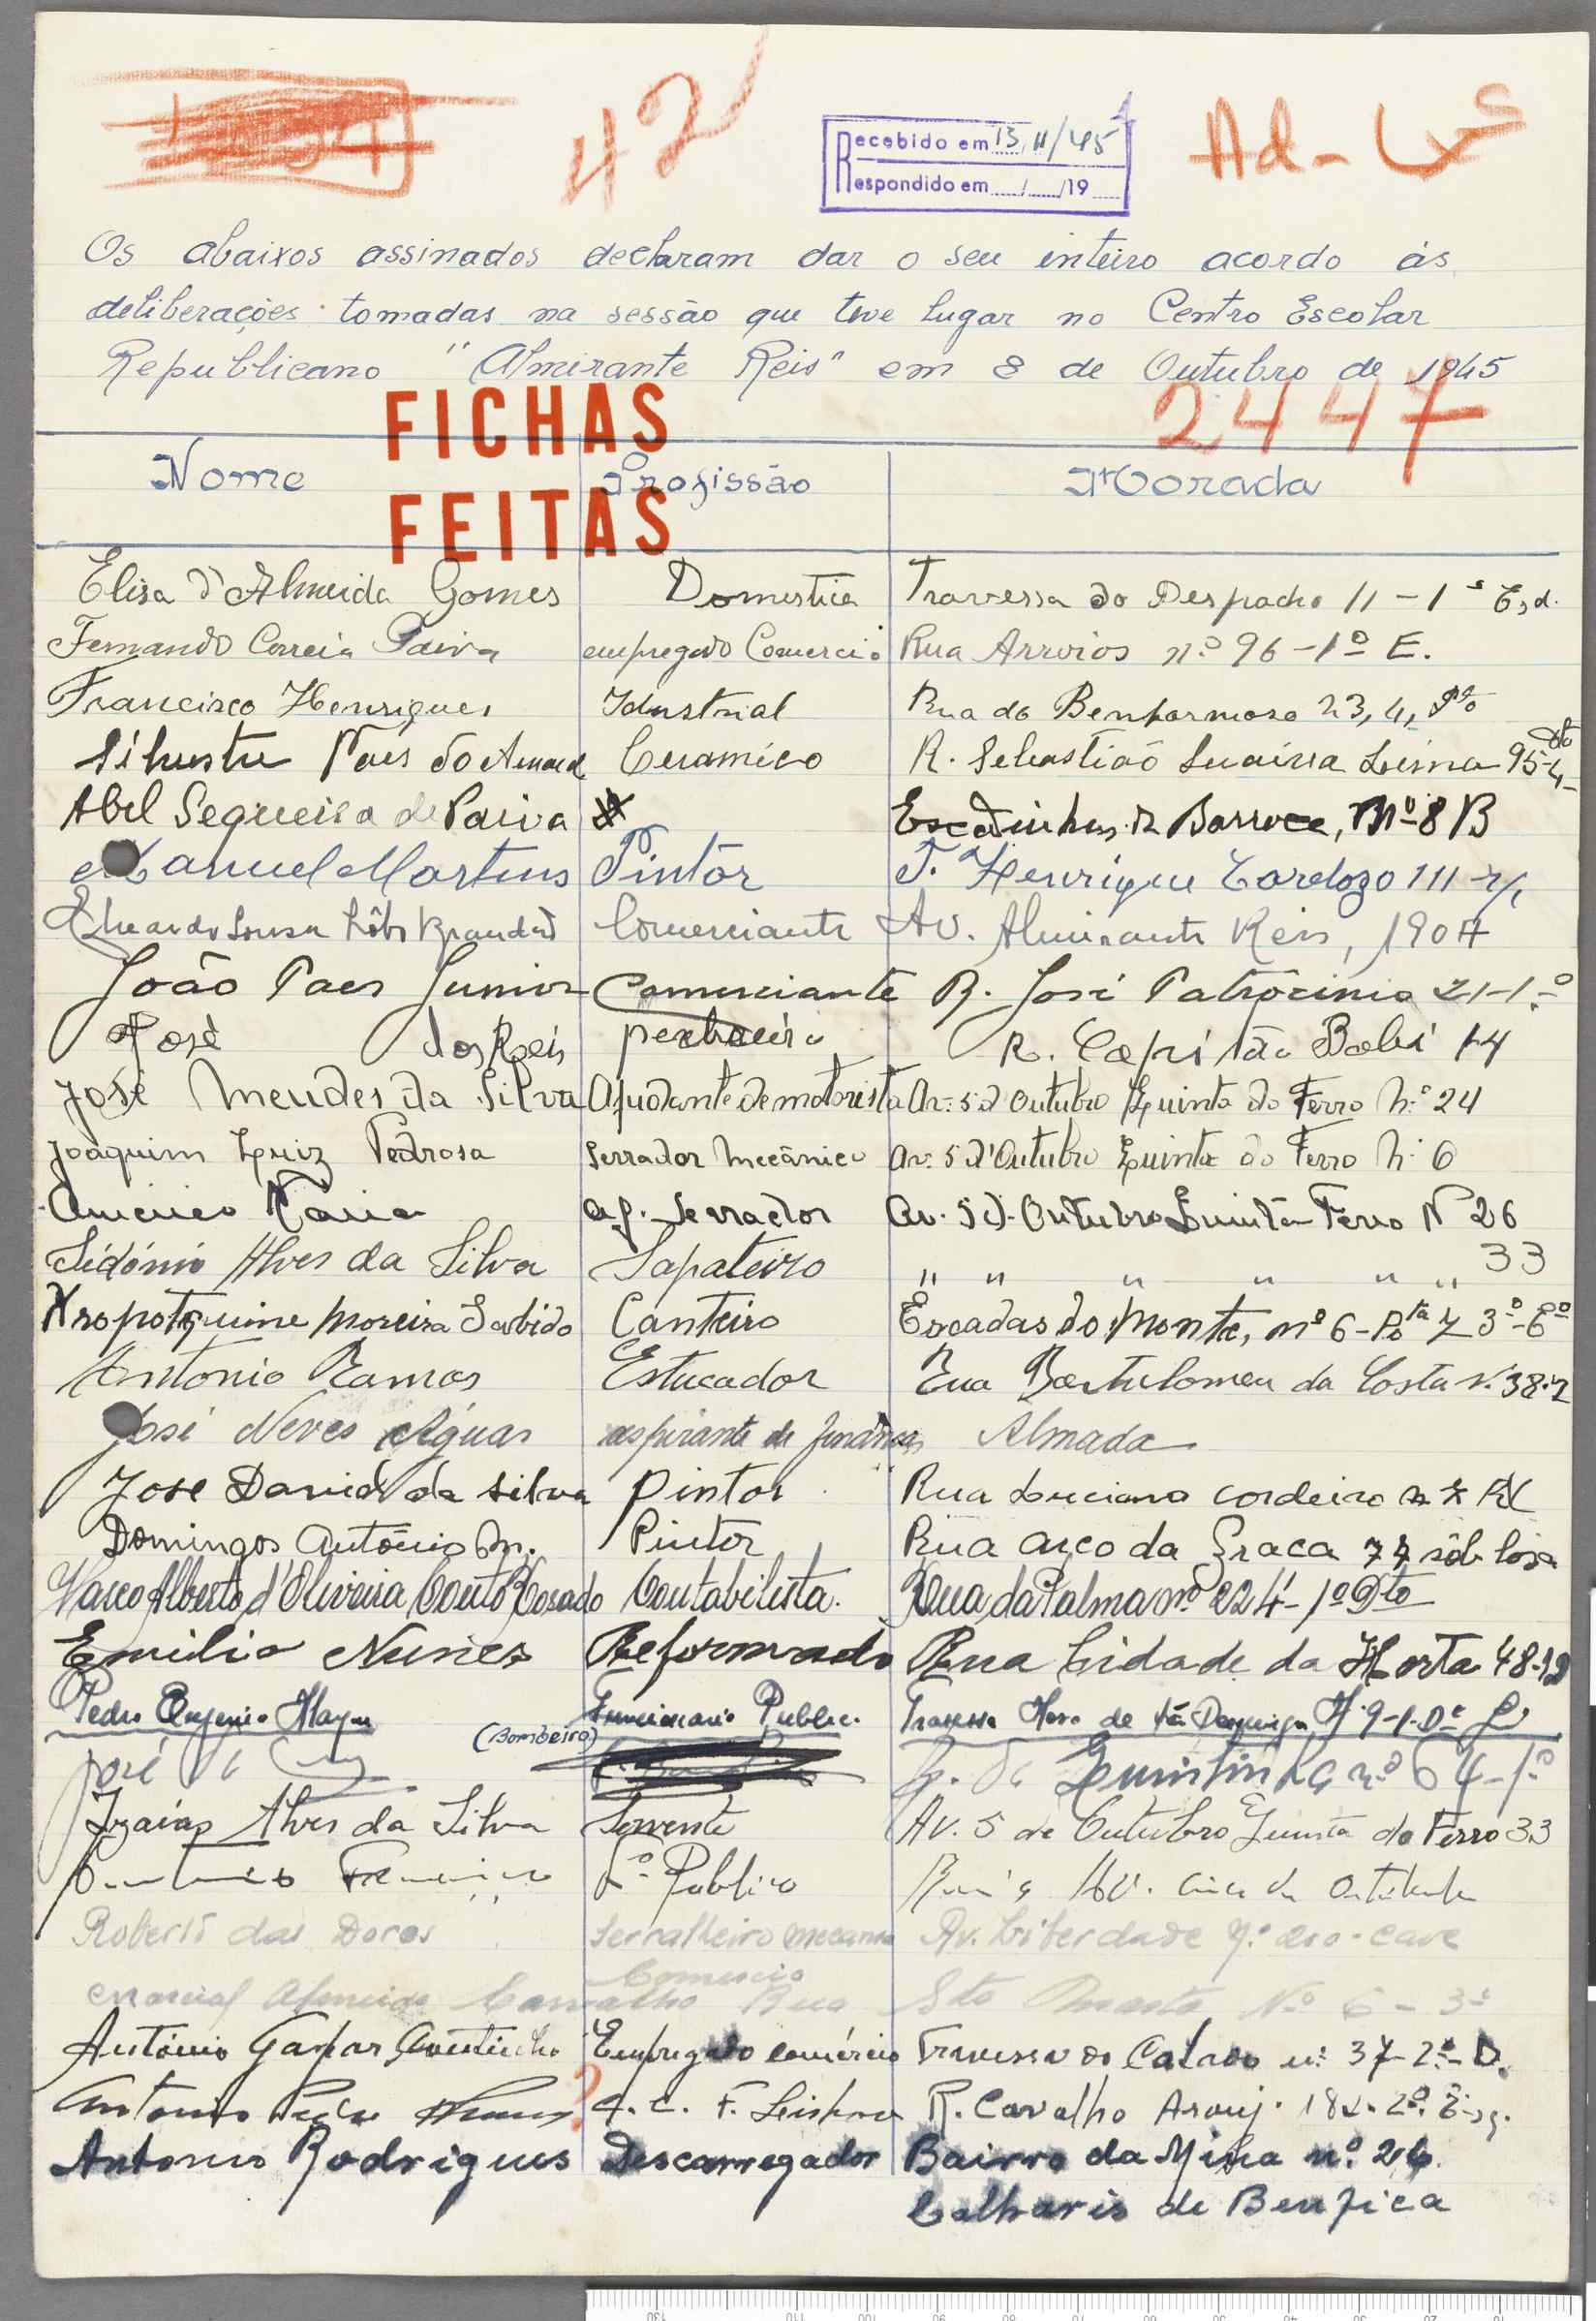 42
Recebido em 13/11/45
Respondido em / /19
Ad-
Os abaixos assinados declaram dar o seu inteiro acordo às
deliberações tomadas na sessão que teve lugar no Centro Escolar
Republicano "Almirante Reis" em 8 de Outubro de 1945
2447
FICHAS
FEITAS
Nome Profissão Morada
Elisa d'Almeida Gomes Domestica Travessa do Despacho 11-1º Esd.
Fernando Correia Paiva empregado Comercio Rua Arroios nº 96-1º E.
Francisco Henriques Idustrial Rua do Benformoso 23, 4,
Silvestre Pais do Amaral Ceramico R. Sebastião Saraiva Lima 95-4-
Abel Sequeira de Paiva Escadinhas Barroca, Nº 8 B
Manuel Martins Pintôr T. Henrique Cardozo 111
Eduardo Sousa Lôbo Brandão Comerciante Av. Almirante Reis, 190 A
João Paes Junior Comerciante R. José Patrócinio 21-1.º
José dos Reis R. Capitão 14
José Mendes da Silva Ajudante de motorista Av. 5 d'Outubro Quinta do Ferro N.º 24
Joaquim Luiz Pedrosa Serrador Mecânico Av. 5 d'Outubro Quinta do Ferro N.º 6
Americo Faria aj. Serrador Av. 5 d. Outubro Quinta Ferro N 26
Sidónio Alves da Silva Sapateiro " " " " " " 33
Kropotquine Moreira Sabido Canteiro Escadas do Monte, nº 6-Pta 7 3º-Eº
Antonio Ramos Estucador Rua Bartulomeu da Costa N. 38-2
José Neves Aguas aspirante de finanças Almada
Jose David da Silva Pintor Rua Luciano Cordeiro
Domingos António Pintor Rua Arco da Graca 74 sôb loja
Vasco Alberto d'Oliveira Couto Rosado Contabilista. Rua da Palma nº 224-1º Dto
Emilio Nunes Reformado Rua Cidade da Horta 48-
Pedro Eugenio Funcionario Publico Travessa Nova de São Domingos Nº 9-1.
José (Bombeiro) Quintinha nº 64-1º
Izaías Alves da Silva Servente Av. 5 de Outubro Quinta do Ferro 33
Publico
Roberto das Dores Serralheiro mecanico Av. Liberdade cave
Comercio
Marcial Almeida Carvalho Rua Sta Marta Nº 6-3º
António Gaspar Coutinho Empregado comércio Travessa do nº 37-2º-D.
Antonio C. F. Lisboa R. Carvalho Arauj. 182-2º. Esq.
Antonio Rodrigues Descarregador Bairro da Mina nº 26
Calhariz de Benfica